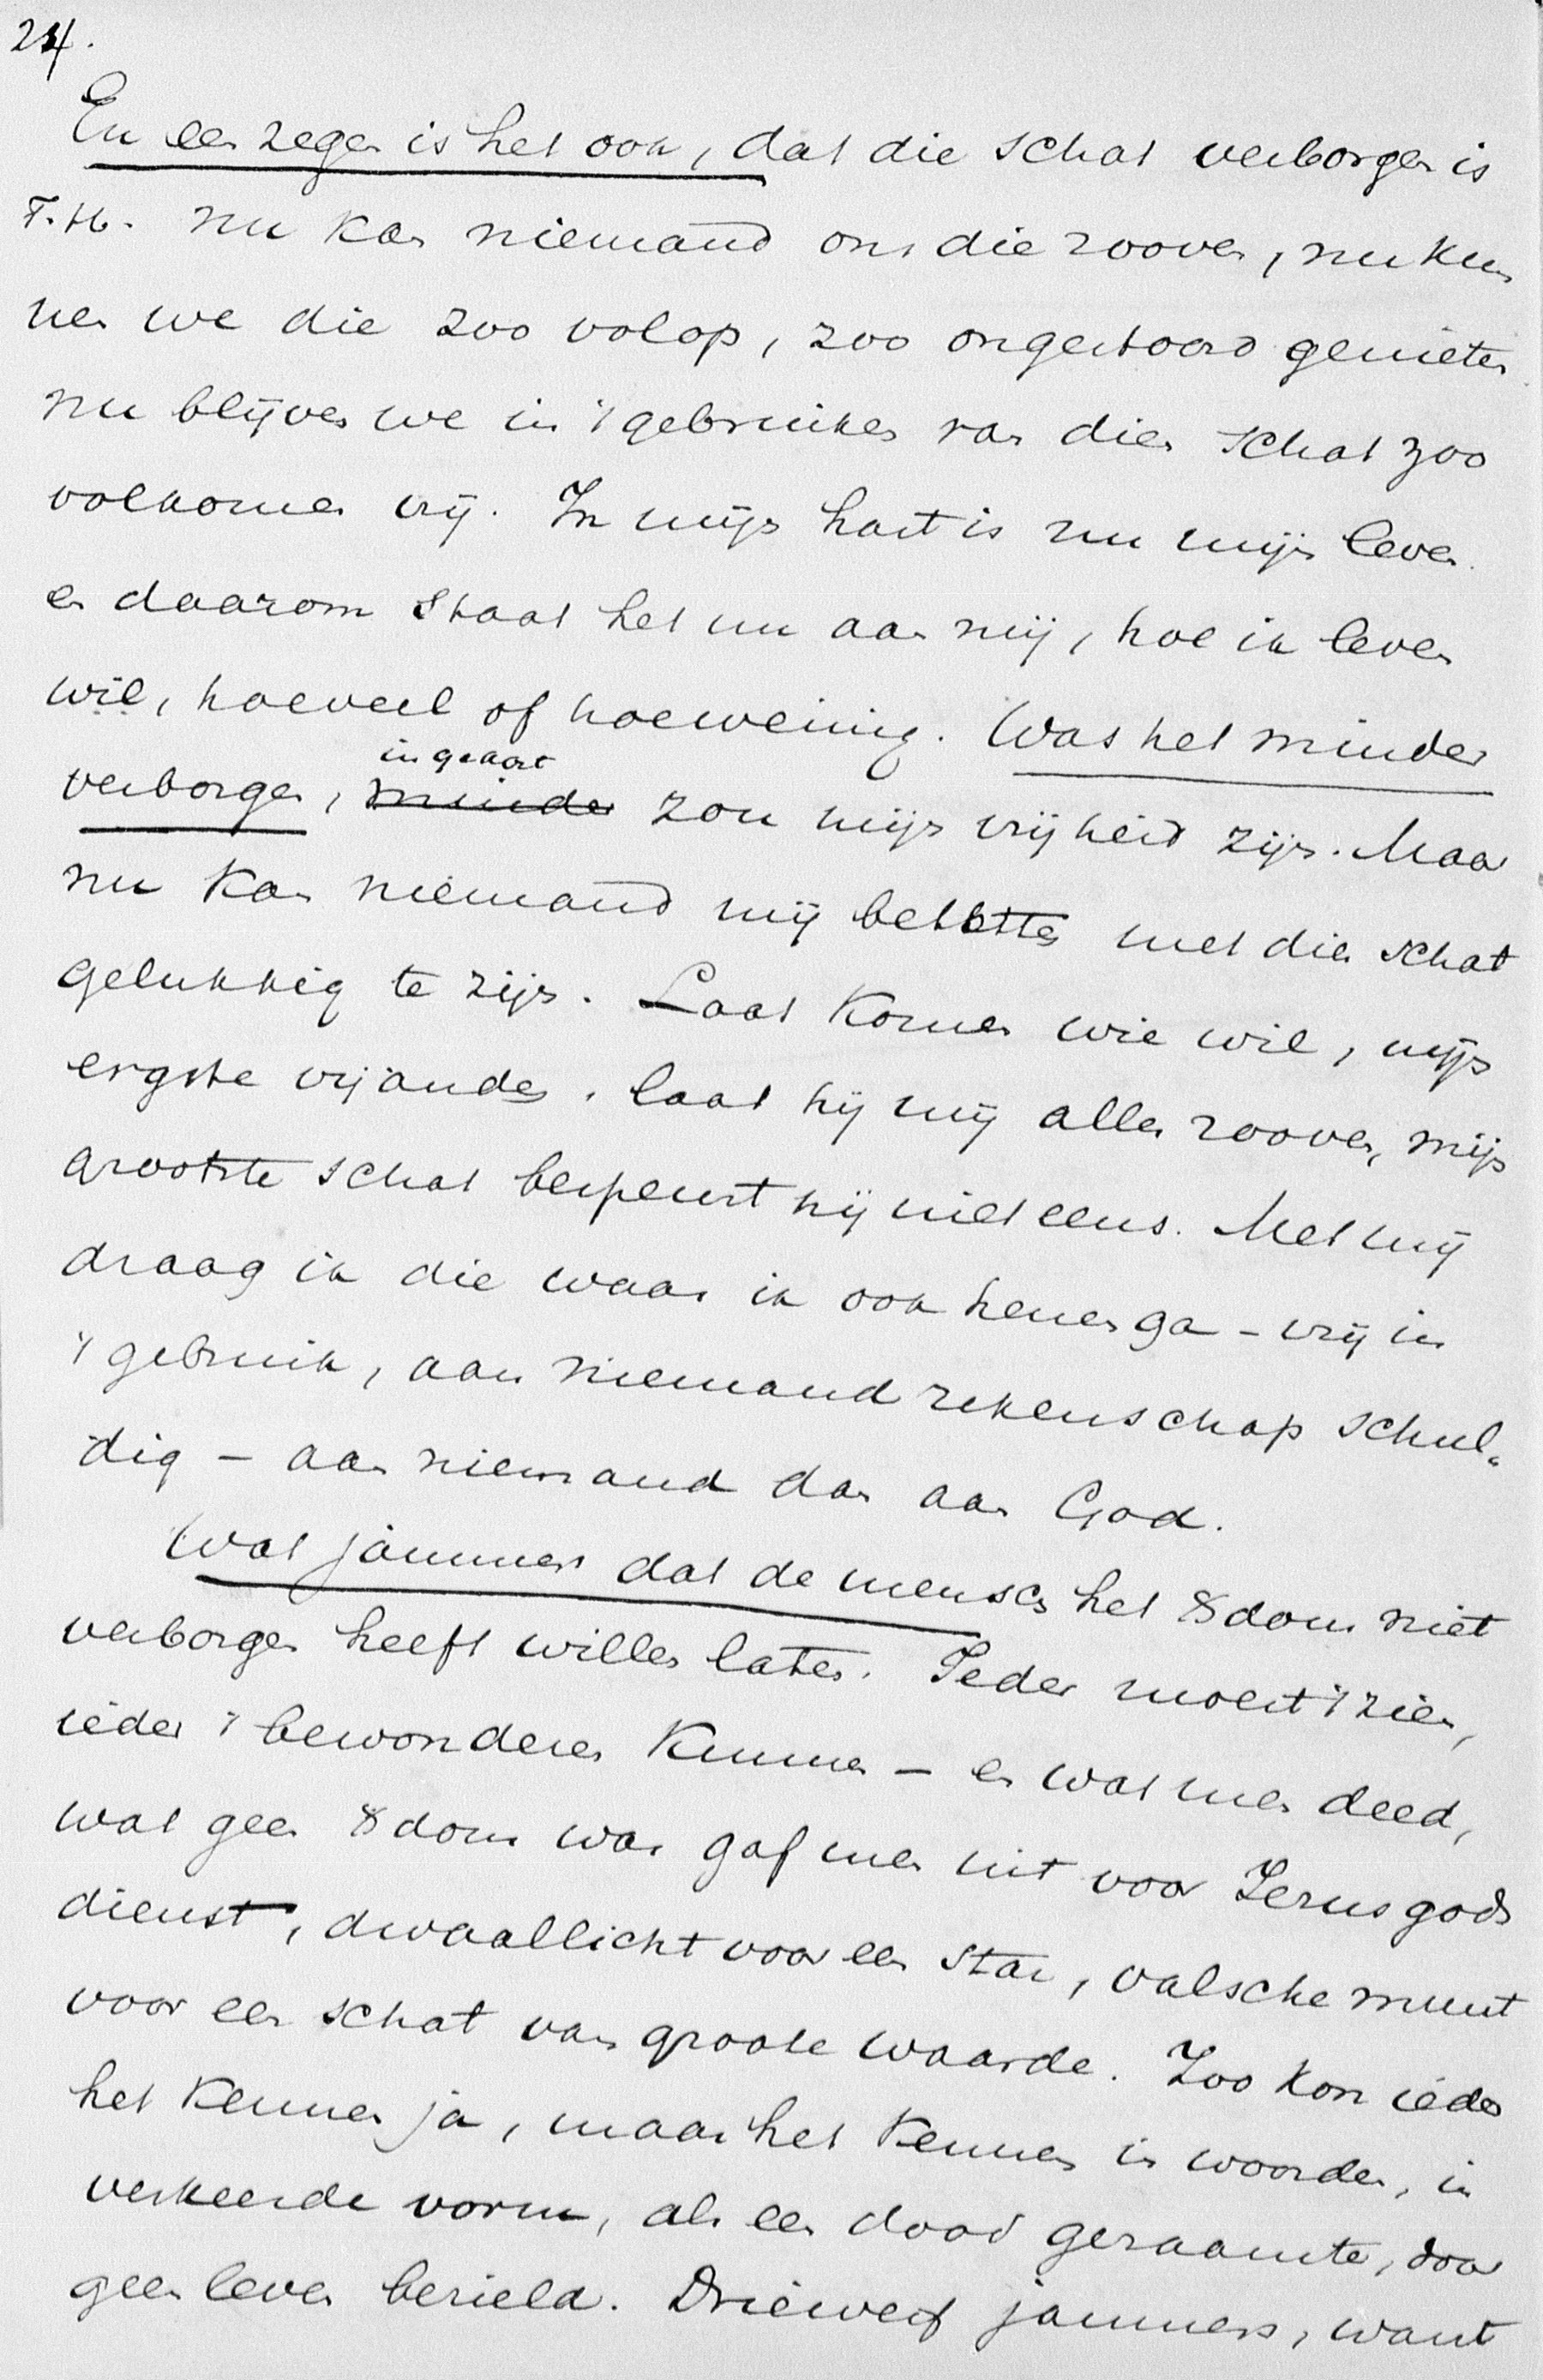 24.
En een zegen is het ook, dat die schat verborgen is
T.H. nu kan niemand ons die rooven, nu kun
nen we die zoo volop, zoo ongestoord genieten
nu blijven we in 't gebruiken van dien schat zoo
volkomen vrij. In mijn hart is nu mijn leven
en daarom staat het nu aan mij, hoe ik leven
wil, hoeveel of hoeweinig. Was het minder
in gevaar
verborgen, minder zou mijn vrijheid zijn. Maar
nu kan niemand mij beletten met dien schat
gelukkig te zijn. Laat komen wie wil, mijn
ergste vijanden, laat hij mij alles rooven, mijn
grootste schat bespeurt hij niet eens. Met mij
draag ik die waar ik ook henen ga - vrij in
't gebruik, aan niemand rekenschap schul-
dig - aan niemand dan aan God.
Wat jammer dat de mensch het Xdom niet
verborgen heeft willen laten. Ieder moest 't zien,
ieder 't bewonderen kunnen - en wat men deed,
wat geen Xdom was gaf men uit voor Jezus gods
dienst, dwaallicht voor een star, valsche munt
voor een schat van groote waarde. Zoo kon ieder
het kennen ja, maar het kennen in woorden, in
verkeerde vorm, als een dood geraamte, door
geen leven bezield. Driewerf jammer, want